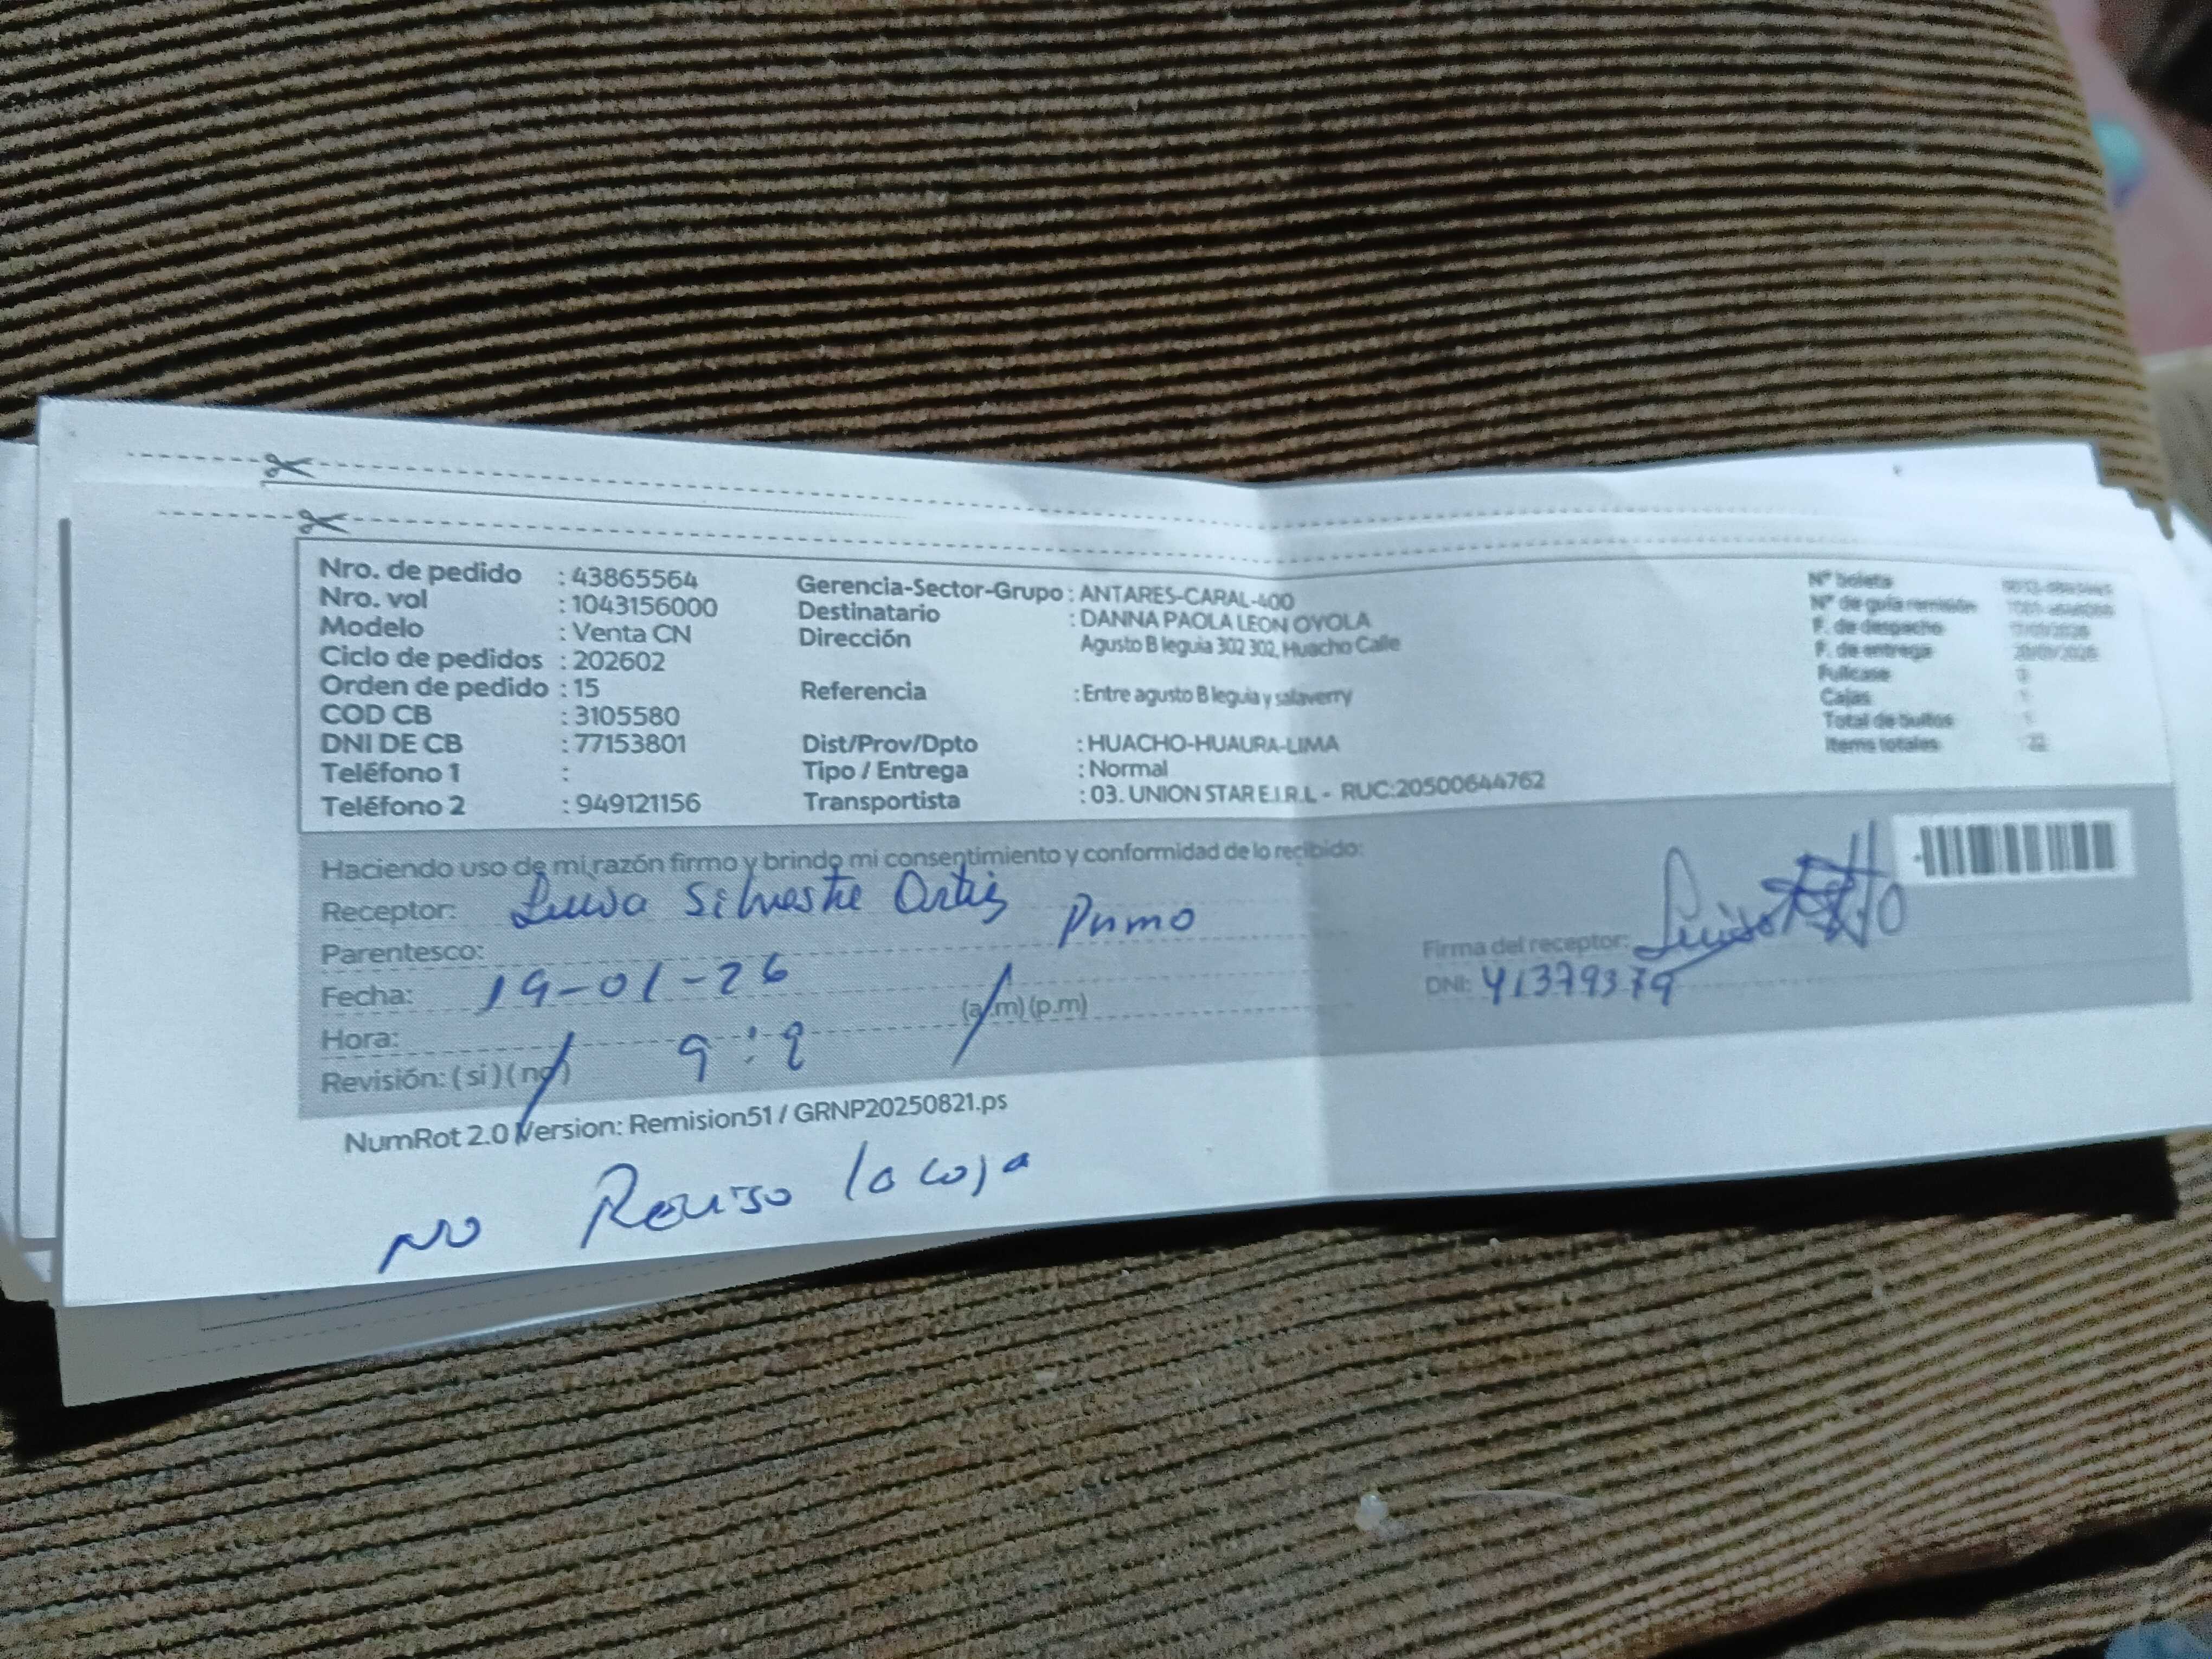 Nro. de pedido : 43865564
Nro. vol : 1043156000
Modelo : Venta CN
Ciclo de pedidos : 202602
Orden de pedido : 15
COD CB : 3105580
DNI DE CB : 77153801
Teléfono 1 :
Teléfono 2 : 949121156
Gerencia-Sector-Grupo : ANTARES-CARAL-400
Destinatario : DANNA PAOLA LEON OYOLA
Dirección Agusto B leguia 302 302, Huacho Calle
Referencia : Entre agusto B leguia y salaverry
Dist/Prov/Dpto : HUACHO-HUAURA-LIMA
Tipo / Entrega : Normal
Transportista : 03. UNION STAR E.I.R.L - RUC:20500644762
Nº boleta
Nº de guía remisión
F. de despacho
F. de entrega
Fullcase
Cajas
Total de bultos
Items totales
Haciendo uso de mi razón firmo y brindo mi consentimiento y conformidad de lo recibido:
Receptor: Luisa Silvestre Ortiz
Parentesco: Primo
Fecha: 19-01-26
Hora: 9:2 (a.m) (p.m)
Revisión: ( si ) ( no )
Firma del receptor:
DNI: 41379379
NumRot 2.0 Version: Remision51 / GRNP20250821.ps
NO Reviso la caja